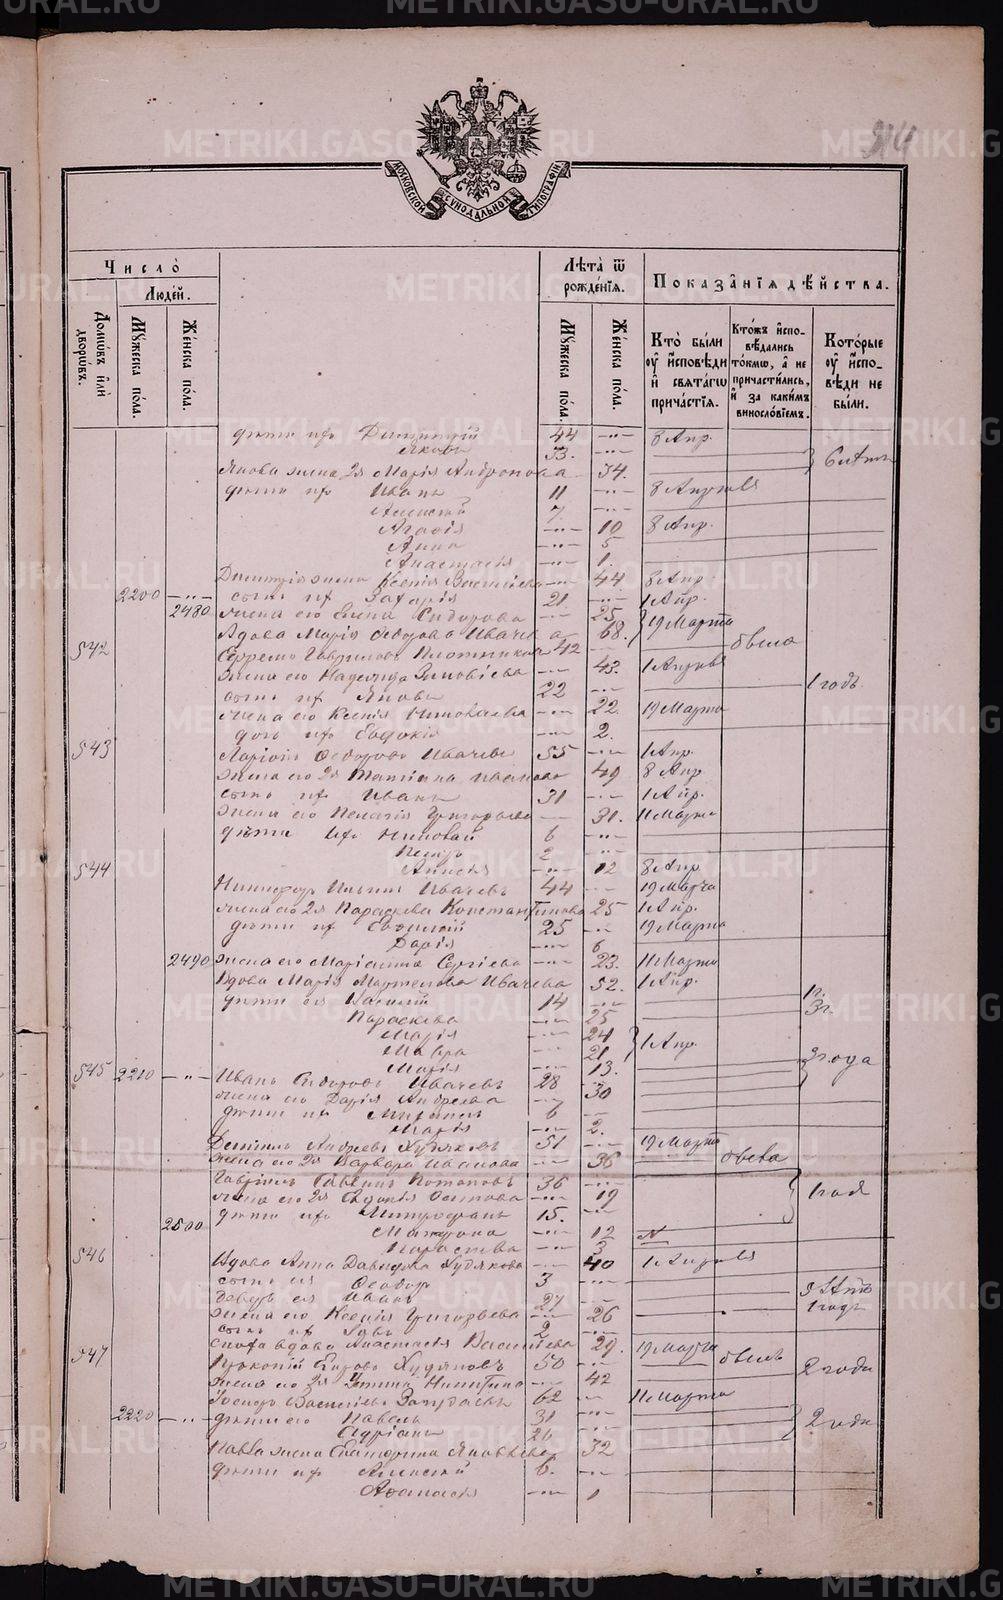 METRIKI.GASO-URAL.RU
914
МОСКОВСКОЙ СУНОДАЛЬНОЙ ТИПОГРАФІИ
Число̀
Людей.
Домѡвъ и҆лѝ дворѡвъ.
Мꙋжеска пола.
Женска пола.
Лѣта ѿ рожденїѧ.
Мꙋжеска пола.
Женска пола.
Показанїѧ дѣйства.
Кто̀ были оу҆ и҆сповѣди и҆ свѧтагѡ причастїѧ.
Ктожъ и҆спо-вѣдались токмѡ, а҆ не причастились, и҆ за какимъ винословїемъ.
Которые оу҆ и҆спо-вѣди не были.
дѣти ихъ Димитрій 44 8 Апр.
Яковъ 33. 6 лѣтъ
Якова жена 2я Марія Андронова 34.
дѣти их Иванъ 11 8 Апрѣля
Алексѣй 7.
Агафія 10 8 Апр.
Анна 5
Анастасія 1.
Димитрія жена Ксенія Василіева 44 8 Апр.
2200 сынъ их Захарія 21 1 Апр.
2480 жена его Елена Сидорова 25 19 Марта
Вдова Марія Ѳеодорова Ивачева 68.
542 Ефремъ Гавриловъ Плотниковъ 42
жена его Надежда Зиновіева 43. 1 Апрѣля
сынъ их Яковъ 22 1 годъ
жена его Ксенія Николаева 22. 19 Марта
дочь ихъ Евдокія 2.
543 Ларіонъ Ѳеодоровъ Ивачевъ 55 1 Апр.
жена его 2я Татіана Иванова 49 8 Апр
сынъ их Иванъ 31 1 Апр.
жена его Пелагія Григорьева 31. 11 Марта
дѣти ихъ Николай 6
Петръ 2
Анисія 12 8 Апр.
544 Никифоръ Ильинъ Ивачевъ 44 19 Марта
жена его 2я Параскева Константинова 25 1 Апр.
дѣти их Евѳимій 25 19 Марта
Дарія 6
2490 жена его Маріамна Сергіева 23. 11 Марта
Вдова Марія Мартемова Ивачева 52. 1 Апр.
дѣти ея Василій 14 1 г.
Параскева 25 3 г.
Марія 24
Мавра 21 1 Апр.
Марія 13. 2 года
545 2210 Иванъ Сидоровъ Ивачевъ 28
жена его Дарія Андреева 30
дѣти их Михаилъ 6
Марія 2.
Андреевъ Худяковъ 51 19 Марта
жена его 2я Варвара Иванова 36
Гавріилъ Потаповъ 36
жена его 2я Евдокія Осипова 19 1 годъ
дѣти ихъ Митрофанъ 15.
2500 Матрона 12
Параскева 3
546 Вдова Анна Давидова Худякова 40 1 Апрѣля
сынъ ея Ѳеодоръ 3
деверь ея Иванъ 27 3 лѣтъ
жена его Ксенія Григорьева 26 1 годъ
сынъ их 2
сноха вдова Анастасія Василіева 29. 19 Марта
547 Прокопій Егоровъ Худяковъ 50
жена его 2я Никитина 42 2 года
Василіевъ 62 11 Марта
2220 дѣти его Павелъ 31
Адріанъ 20 2 года
Павла жена Екатерина Яковлева 32
дѣти их Алексѣй 6.
Аѳанасія 1